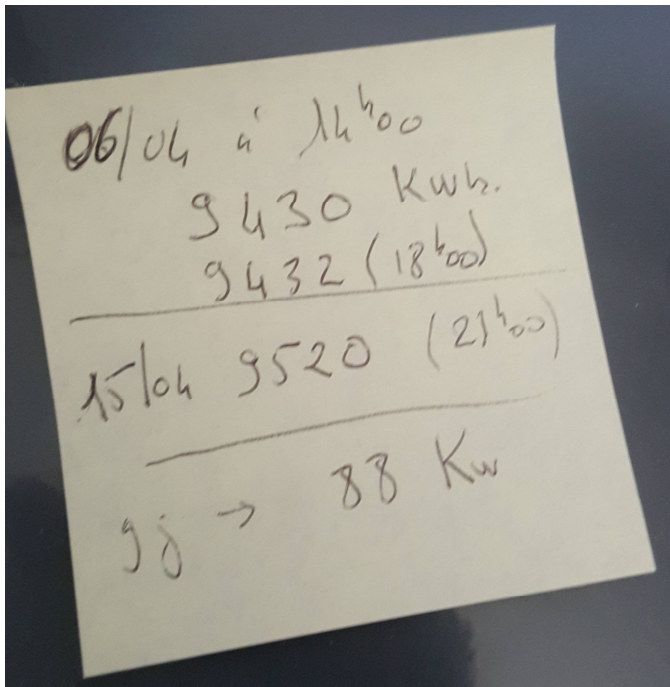 06/04 à 14h00
9430 Kwh.
9432 (18h00)
15/04 9520 (21h00)
9j → 88 Kw